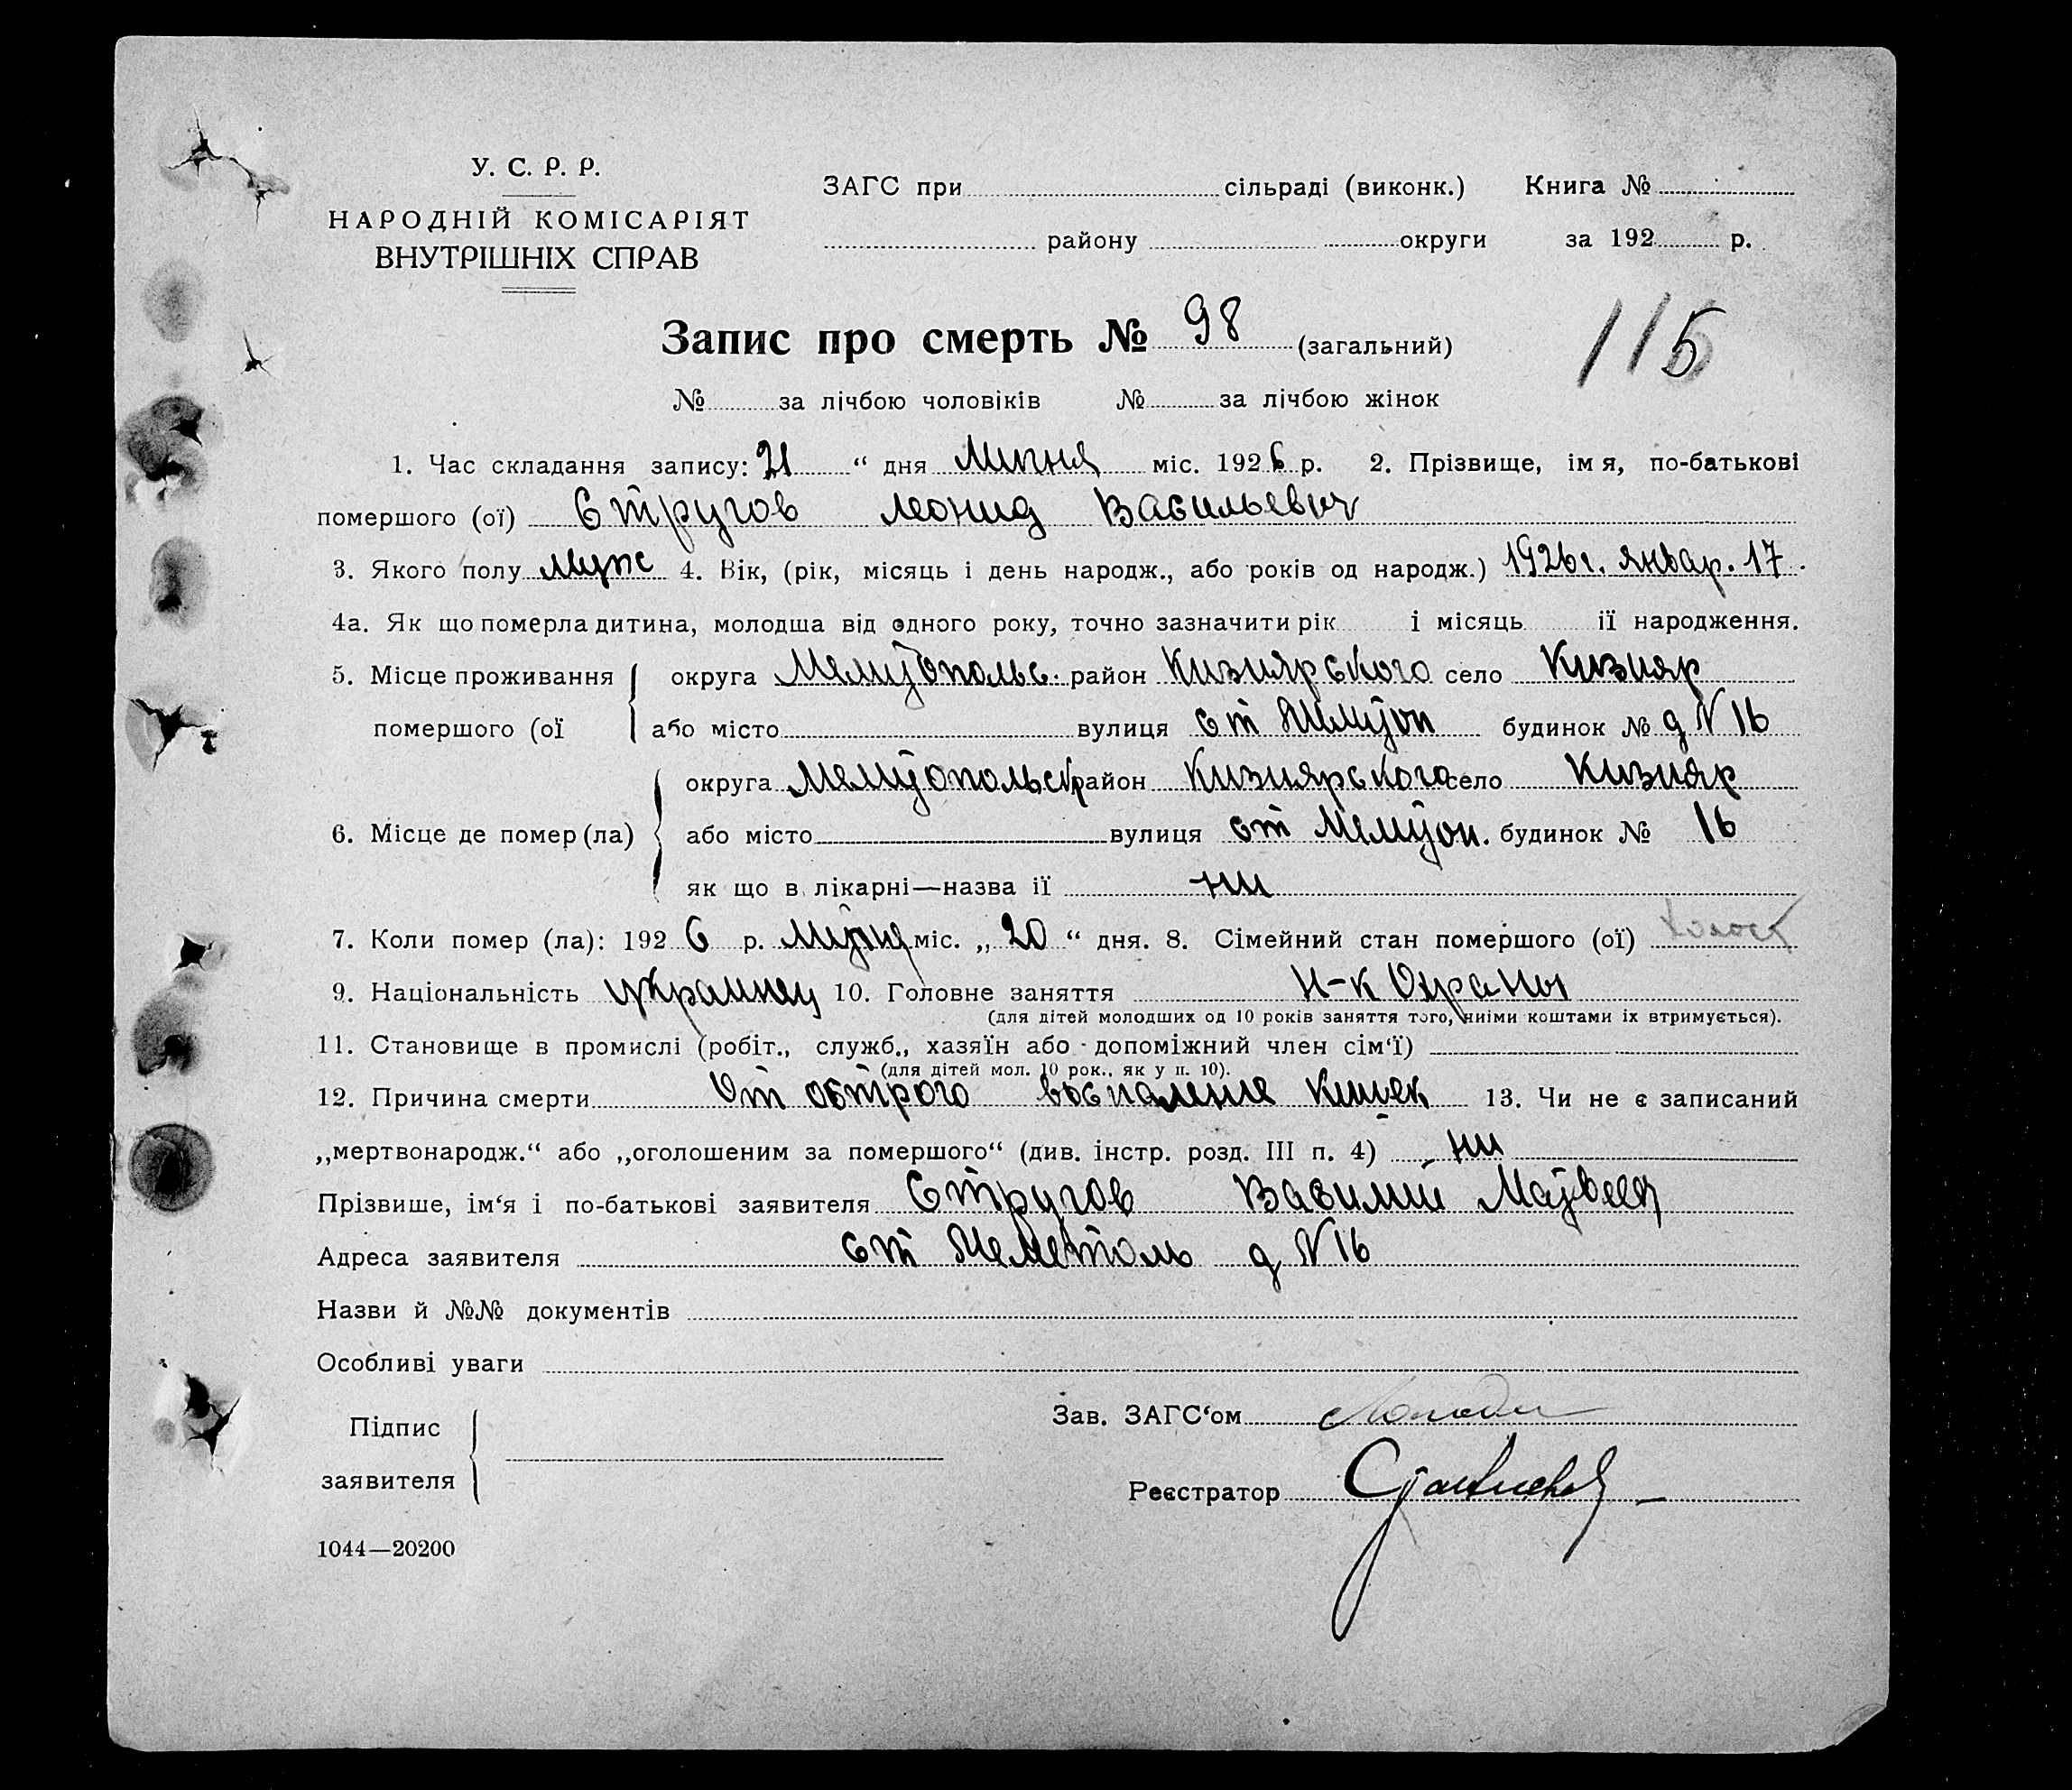 У. С. Р. Р.
НАРОДНІЙ КОМІСАРІЯТ
ВНУТРІШНІХ СПРАВ
ЗАГС при сільраді (виконк.) Книга №
району округи за 192 р.
Запис про смерть № 98 (загальний)
115
№ за лічбою чоловіків № за лічбою жінок
1. Час складання запису: 21 “ дня Липня міс. 1926 р. 2. Прізвище, імя, по-батькові
помершого (ої) Стругов Леонид Васильевич
3. Якого полу муж 4. Вік, (рік, місяць і день народж., або років од народж.) 1926 г. январ. 17.
4а. Як що померла дитина, молодша від одного року, точно зазначити рік і місяць її народження.
5. Місце проживання округа Мелитопольс. район Кизиярского село Кизияр
помершого (ої або місто вулиця ст Мелитоп будинок № д N 16
округа Мелитопольск район Кизиярского село Кизияр
6. Місце де помер (ла) або місто вулиця ст Мелитоп. будинок № 16
як що в лікарні—назва її ни
7. Коли помер (ла): 1926 р. міс. „ 20 “ дня. 8. Сімейний стан помершого (ої) холост
9. Національність украинец 10. Головне заняття Н-к Охраны
(для дітей молодших од 10 років заняття того, чиїми коштами їх втримується).
11. Становище в промислі (робіт., служб., хазяїн або допоміжний член сім‘ї)
(для дітей мол. 10 рок., як у п. 10).
12. Причина смерти От острого воспаления кишек 13. Чи не є записаний
„мертвонародж.“ або „оголошеним за помершого“ (див. інстр. розд. III п. 4) ни
Прізвише, ім‘я і по-батькові заявителя Стругов Василий Матвеев
Адреса заявителя ст д N 16
Назви й №№ документів
Особливі уваги
Підпис
заявителя
Зав. ЗАГС‘ом
Реєстратор
1044—20200